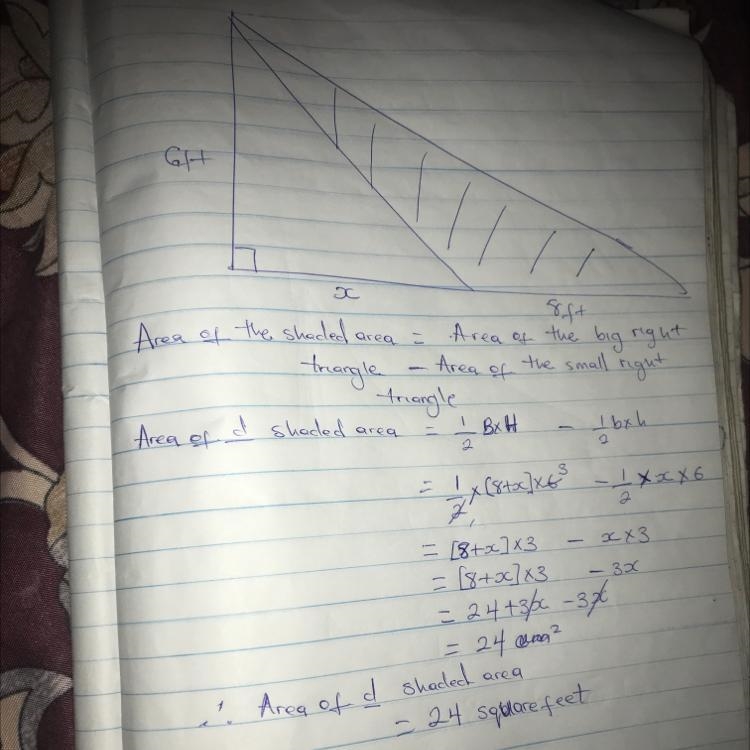 6ft
x
8ft
Area of the shaded area = Area of the big right
triangle – Area of the small right
triangle
Area of d shaded area = 1/2 B×H – 1/2 b×h
= 1/2 × [8+x] × 6 3 – 1/2 × x × 6
1
= [8+x] × 3 – x × 3
= [8+x] × 3 – 3x
= 24 + 3x – 3x
= 24 2
∴ Area of d shaded area
= 24 square feet